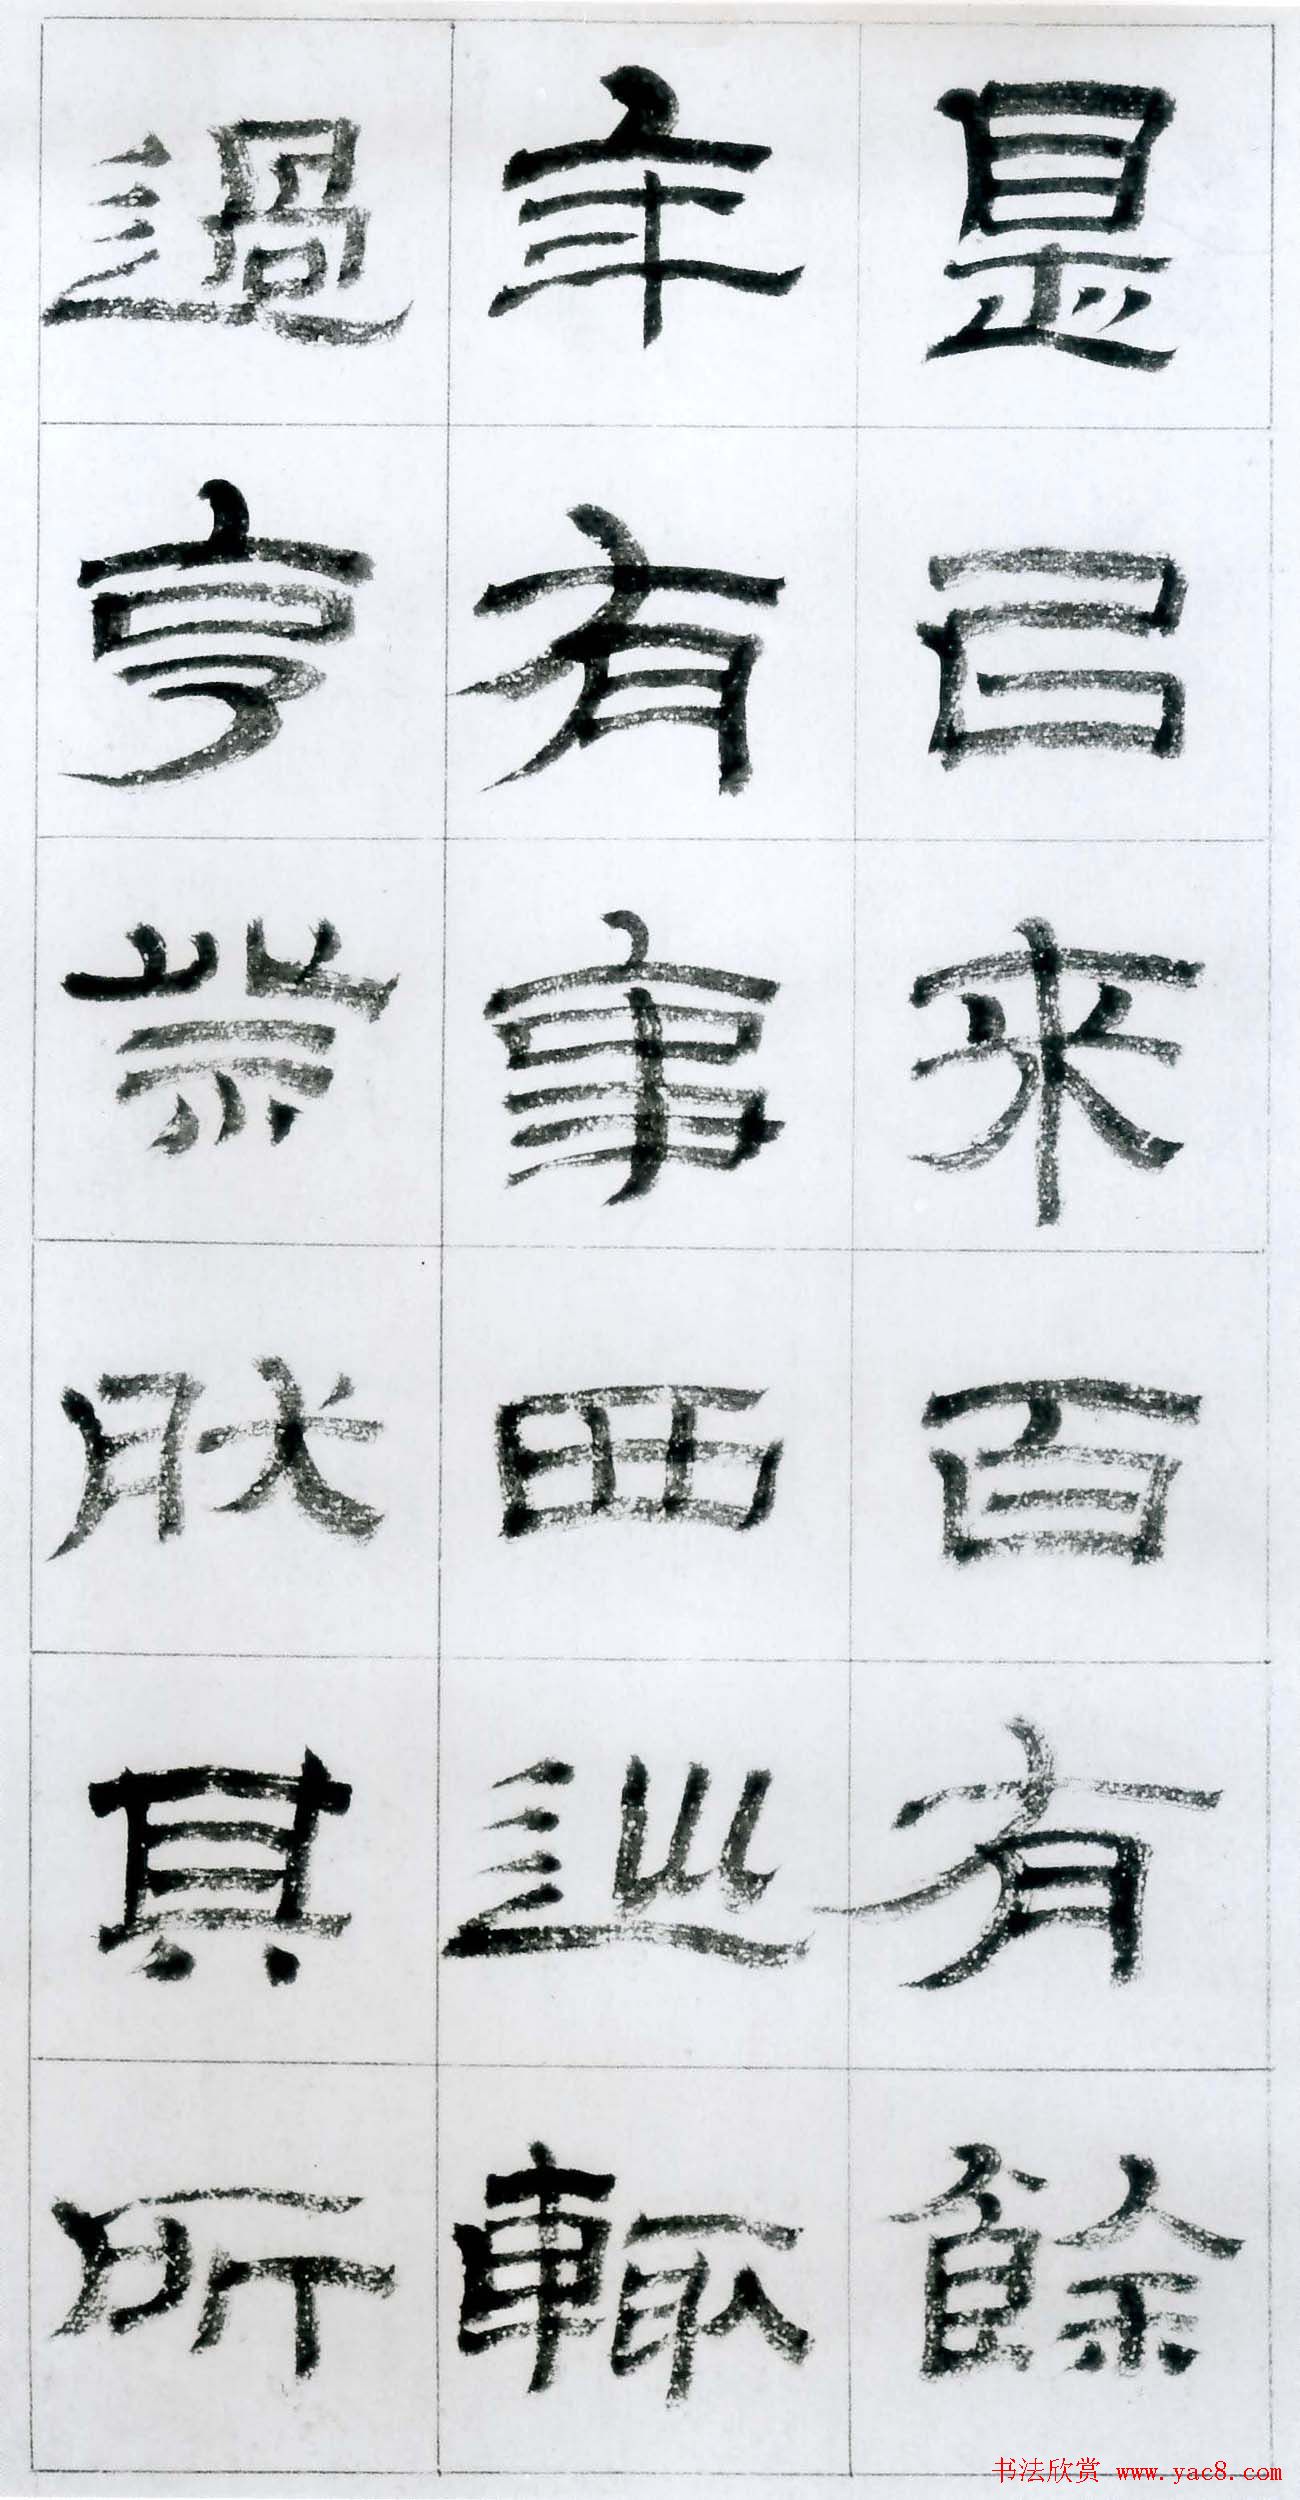 是㠯來百有餘
年有事西巡輒
過亨祭肰其所
书法欣赏 www.yac8.com